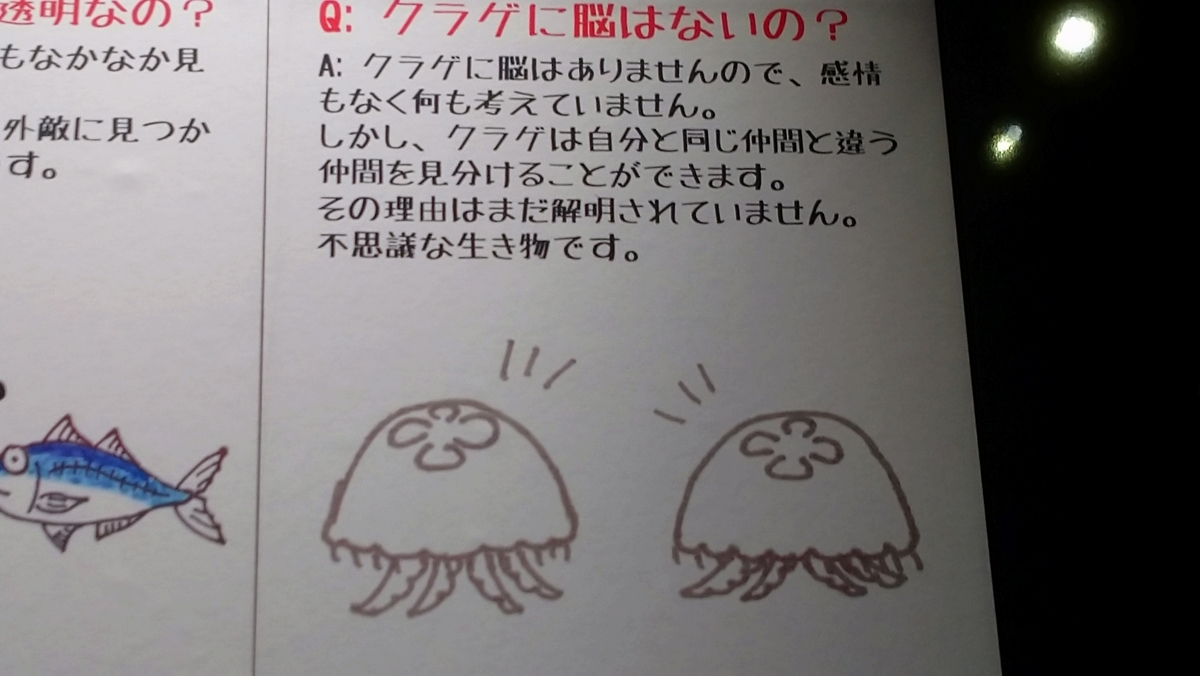 透明なの？
もなかなか見
外敵に見つか
す。
Q: クラゲに脳はないの？
A: クラゲに脳はありませんので、感情
もなく何も考えていません。
しかし、クラゲは自分と同じ仲間と違う
仲間を見分けることができます。
その理由はまだ解明されていません。
不思議な生き物です。